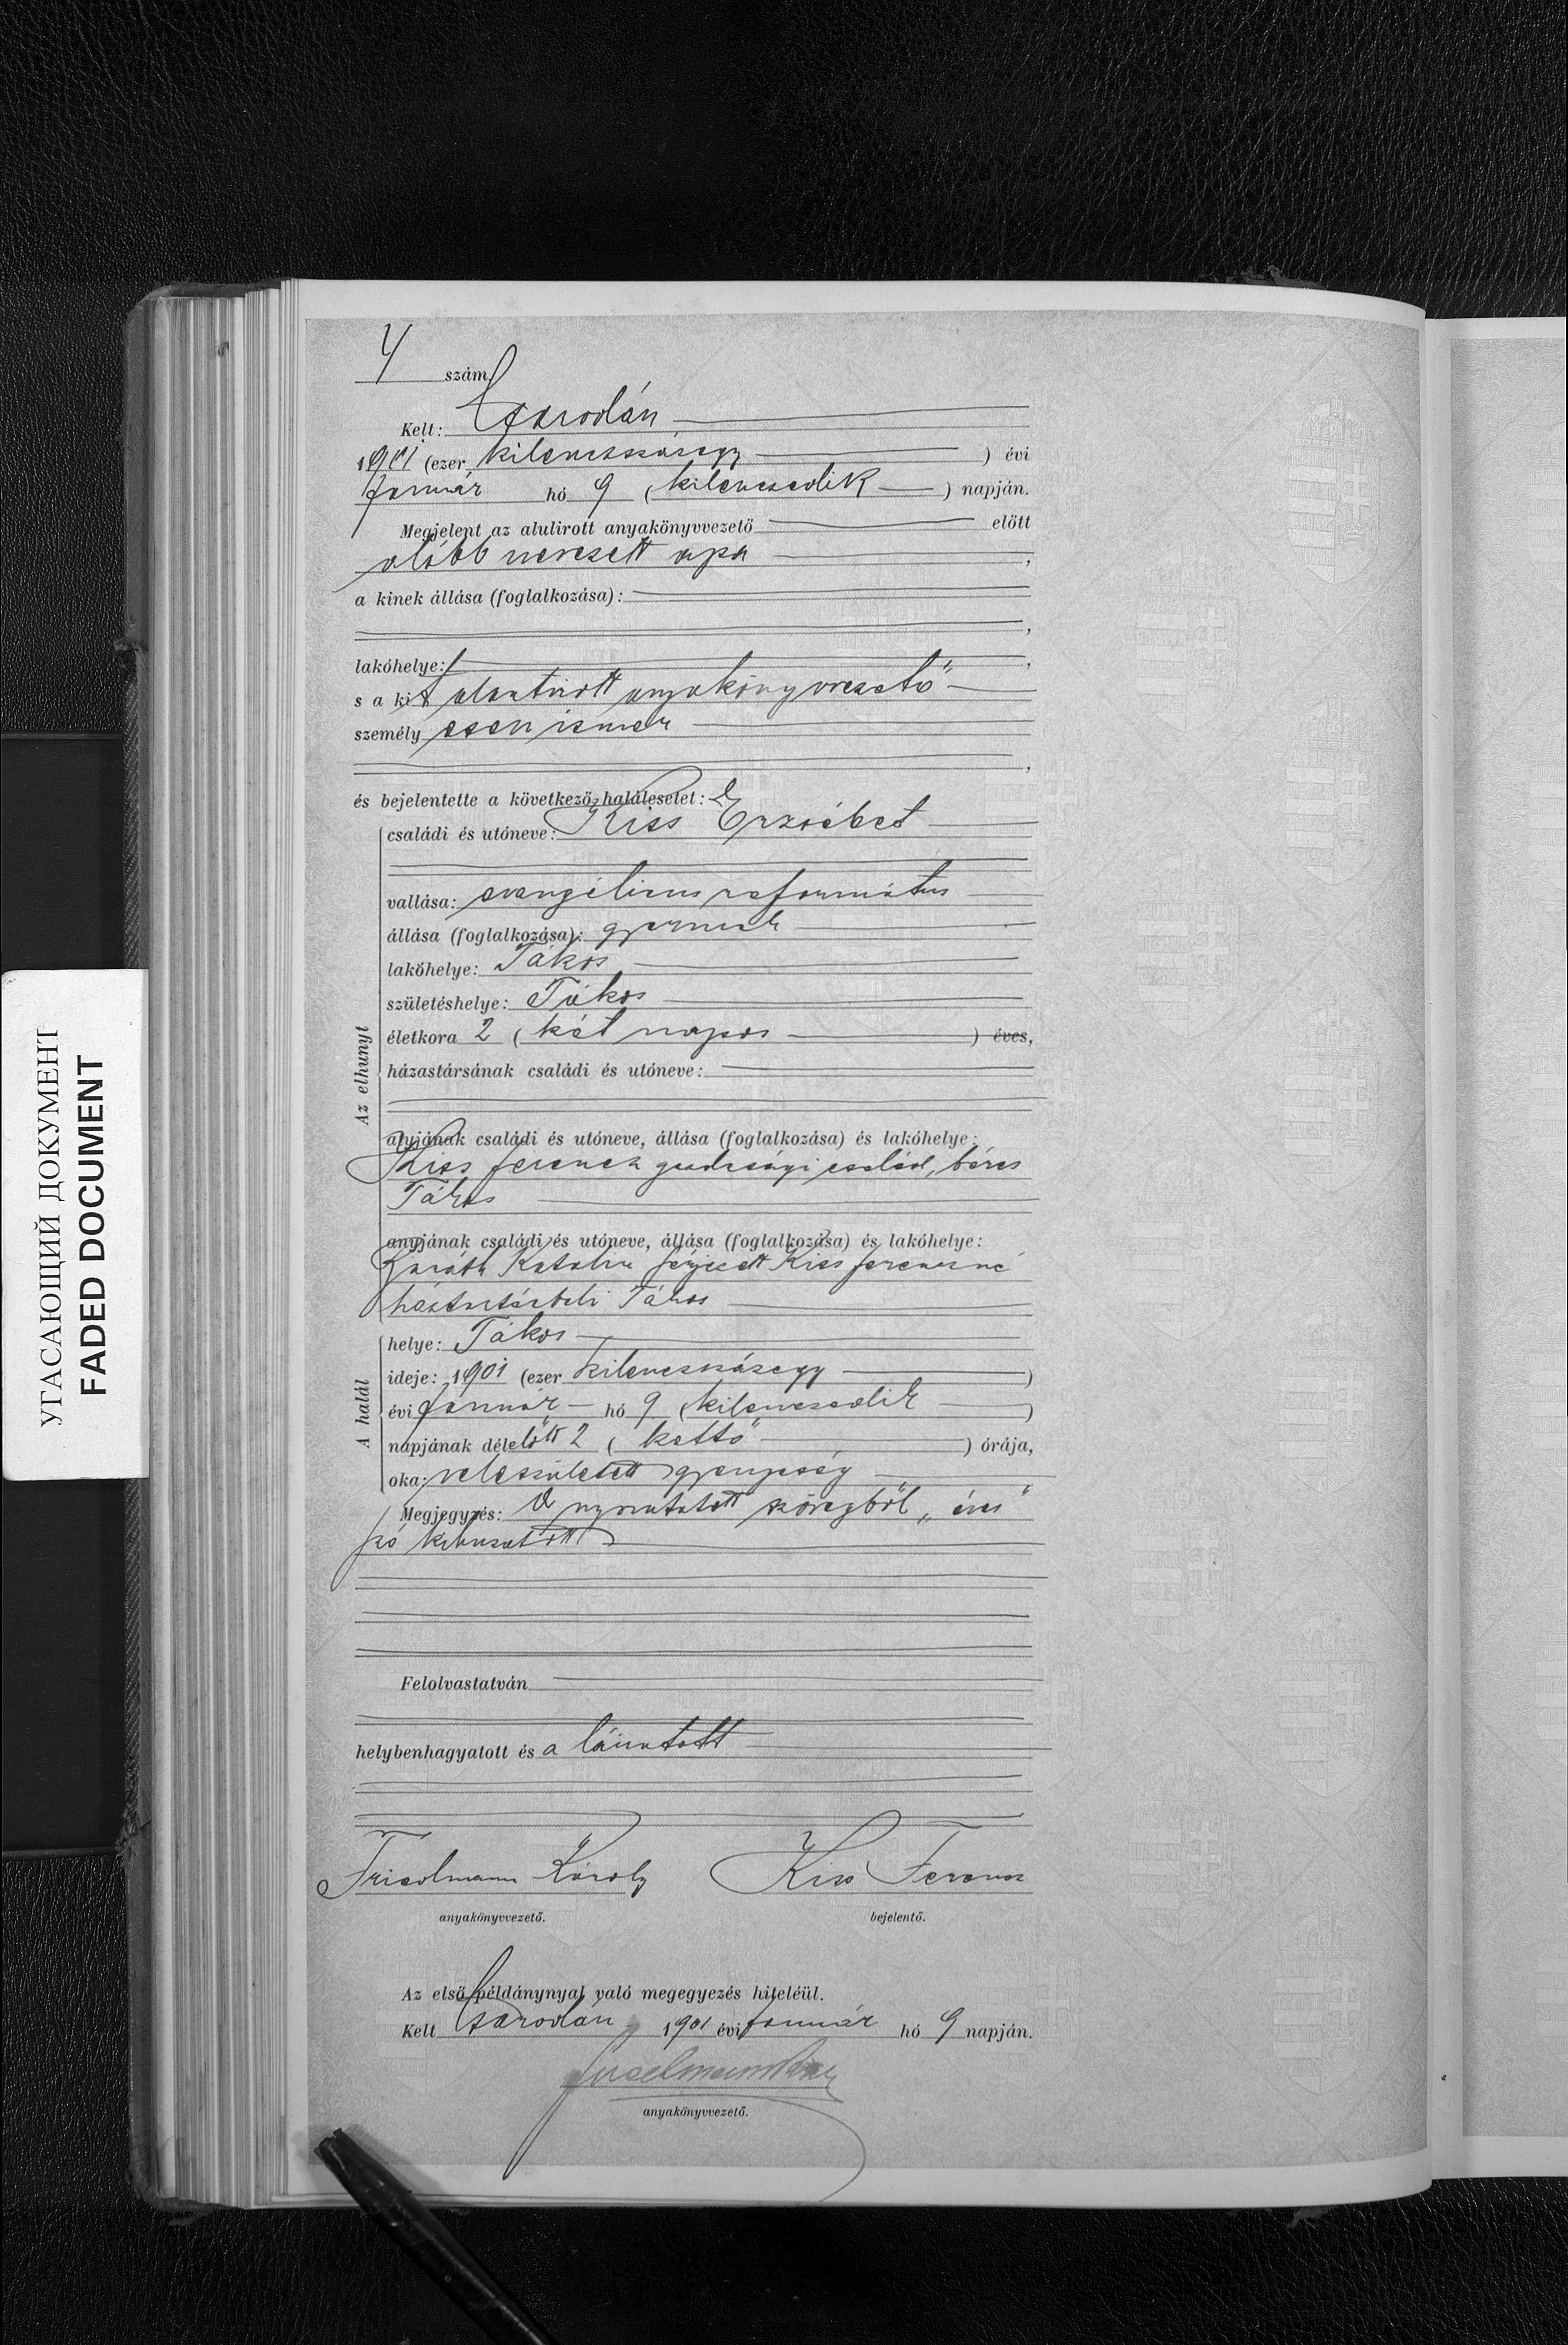 4 szám
Kelt: Csarodán
1901 (ezer kilencszázegy ) évi
Január hó 9 (kilencedik ) napján.
Megjelent az alulirott anyakönyvvezető előtt
alább nevezett apa ,
a kinek állása (foglalkozása):
,
lakóhelye: ,
s a kit alantirott anyakönyvvezető
személyesen ismer
,
és bejelentette a következő halálesetet:
családi és utóneve: Kiss Erzsébet
vallása: evangélicus református
állása (foglalkozása): gyermek
lakóhelye: Tákos
születéshelye: Tákos
életkora 2 (két napos ) éves,
házastársának családi és utóneve:
Az elhunyt
atyjának családi és utóneve, állása (foglalkozása) és lakóhelye:
Kiss Ferencz gazdasági cseléd, béres
Tákos
anyjának családi és utóneve, állása (foglalkozása) és lakóhelye:
Katalin férjezett Kiss Ferenczné
háztartásbeli Tákos
helye: Tákos
ideje: 1901 (ezer kilencszázegy )
évi Január hó 9 (kilencedik )
napjának délelőtt 2 (kettő ) órája,
oka: veleszületett gyengeség
A halál
Megjegyzés: A nyomtatott szövegből „éves"
szó kihuzatott
Felolvastatván
helybenhagyatott és a láiratott
Friedmann Károly Kiss Ferencz
anyakönyvvezető. bejelentő.
Az első példánynyal való megegyezés hiteléül.
Kelt Csarodán 1901 évi Január hó 9 napján.
anyakönyvvezető.
УГАСАЮЩИЙ ДОКУМЕНТ
FADED DOCUMENT